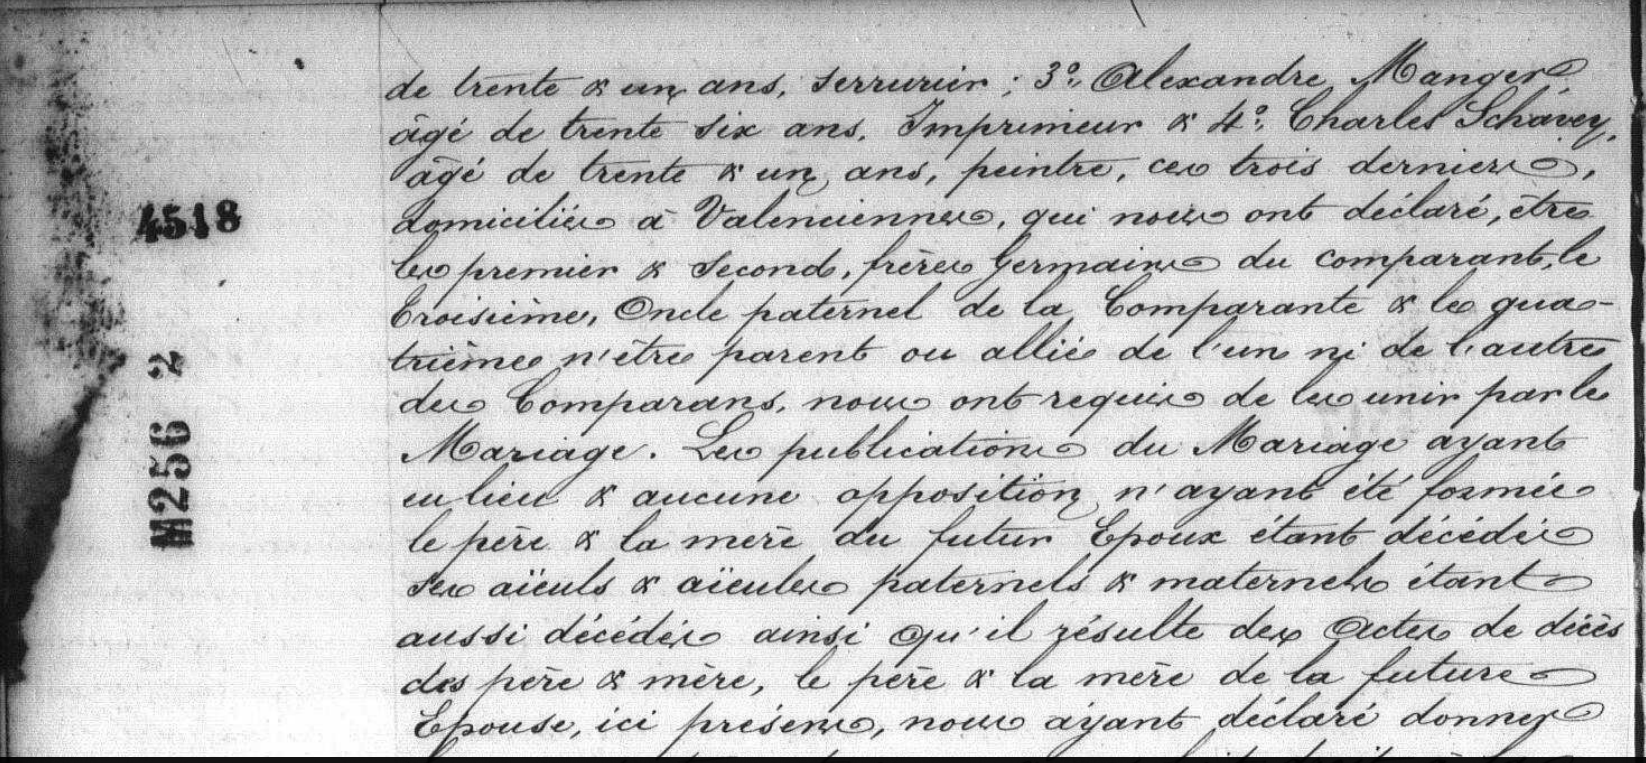 de trente & un ans, serrurier ; 3º Alexandre Manger,
âgé de trente six ans, Imprimeur & 4º, Charles Schavey,
âgé de trente & un ans, peintre, ces trois derniers,
4518
domiciliés à Valenciennes, qui nous ont déclaré, être
les premier & second, frères Germains du comparant, le
troisième, Oncle paternel de la Comparante & le qua-
trième n'être parent ou allié de l'un ni de l'autre
des Comparans, nous ont requis de les unir par le
M256 2
Mariage. Les publications du Mariage ayant
eu lieu & aucune opposition n'ayant été formée
le père & la mère du futur Epoux étant décédés
ses aïeuls & aïeules paternels & maternels étant
aussi décédés ainsi qu'il résulte des Actes de décès
des père & mère, le père & la mère de la future
Epouse, ici présens, nous ayant déclaré donner